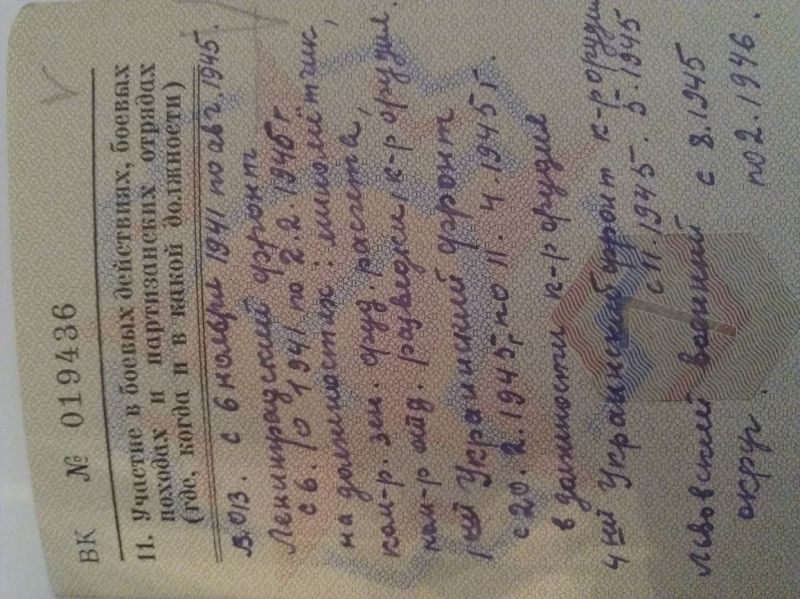 ВК № 019436
11. Участие в боевых действиях, боевых
походах и партизанских отрядах
(где, когда и в какой должности)
с 6 ноября 1941 по авг. 1945.
Ленинградский фронт
с 6. 10 1941 по 2. 2. 1945 г
на должностях: миномётчик,
ком-р. зен. оруд. расчета,
ком-р отд. разведки, к-р орудия.
1 ый Украинский фронт
с 20. 2. 1945, по 11. 4. 1945 г.
в должности к-р орудия
4 ый Украинский фронт к-р орудия
с 11. 1945. 5. 1945
Львовский военный с 8. 1945
округ. по 2. 1946.